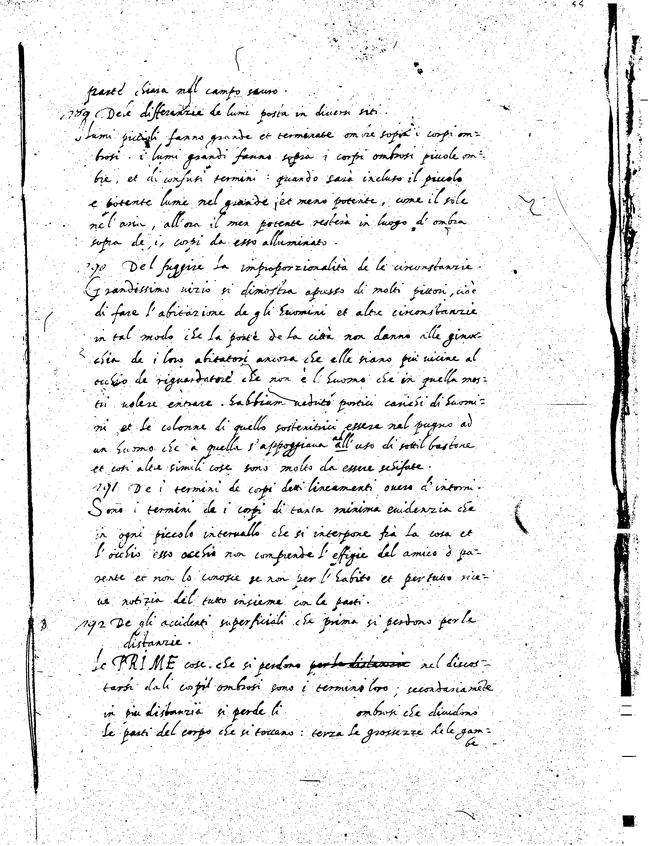 55
parte chiara nel campo scuro.
189 De le differenzie de lumi posta in diversi siti.
J lumi piccioli fanno grande et terminate ombre sopra i corpi om=
brosi. i lumi grandi fanno sopra i corpi ombrosi picole om=
bre, et di confusi termini: quando sarà incluso il piccolo
e potente lume nel grande, et meno potente, come il sole
nel'aria, all'ora il men potente resterà in luogo d'ombra
sopra de, i, corpi da esso alluminato.
190 Del fuggire la improporzionalità de le circunstanzie.
Grandissimo vizio si dimostra apresso di molti pittori, cioè
di fare l'abitazione de gli huomini et altre circonstanzie
in tal modo che la porte de la città non danno alle ginoc=
chia de i loro abitatori ancora che elle siano più vicine al
occhio de riguardatore che non è l'huomo che in quella mos=
tri volere entrare. habbiam veduto portici carichi di huomi=
ni et le colonne di quello sostenitrici essere nel pugno ad
un huomo che à quella s'appoggiava ad all' uso di sottil bastone
et così altre simili cose sono molto da essere schifate.
191 De i termini de corpi detti lineamenti overo d'intorni.
Sono i termini de i corpi di tanta minima evidenzia che
in ogni piccolo intervallo che si interpone fra la cosa et
l'occhio esso occhio non comprende l'effigie del amico ò pa=
rente et non lo conosce se non per l'habito et per tutto rice=
ve notizia del tutto insieme con le parti.
192 De gli accidenti superficiali che prima si perdono per le
distanzie.
Le PRIME cose che si perdono per le distanzie nel discos=
tarsi dali corpi ombrosi sono i termini loro; secondariamẽte
in piu distanzia si perde li ombrosi che dividono
le parti del corpo che si toccano: terza le grossezze dele gam=
be